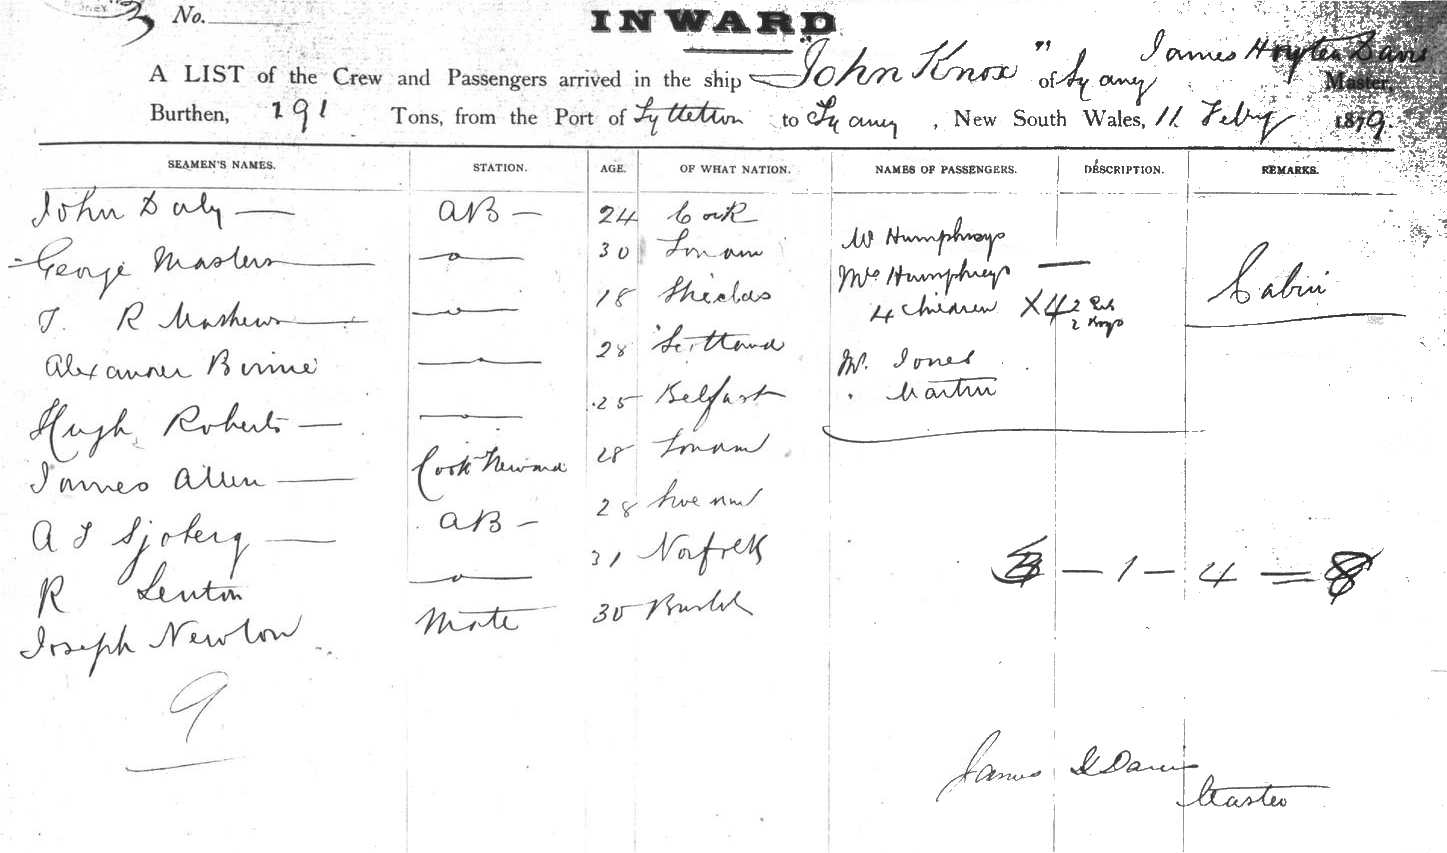 No.
INWARD
A LIST of the Crew and Passengers arrived in the ship "John Knox" of Sydney James Davis Master,
Burthen, 191 Tons, from the Port of Lyttelton to Sydney, New South Wales, 11 Feby 1879.
SEAMEN'S NAMES. STATION. AGE. OF WHAT NATION. NAMES OF PASSENGERS. DESCRIPTION. REMARKS.
John Daly — AB — 24 Cork
George Masters — 30 London Mr Humphreys
T. R Mathews — 18 Shields Mrs Humphreys — Cabin
4 children X4 2
2 Boys
Alexander Binnie 28 Scotland Mr. Jones
Hugh Roberts — 25 Belfast " Martin
James Allen — Cook Steward 28 London
A F Sjoberg — AB — 28 Sweden
R Lenton 31 Norfolk
Joseph Newton Mate 30 Bristol
— 1 — 4 = 8
9
James H Davis
Master